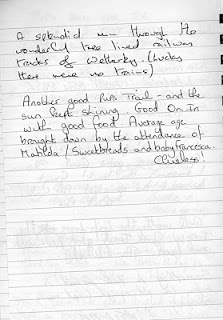 A splendid run through the
wonderful tree lined railway
tracks of Wetherby. (Lucky
there were no trains)
Another good Pub Trail - and the
sun kept shining. Good On In
with good food. Average age
brought down by the attendance of
Matilda / Sweetbreads and baby Francesca.
Clueless!